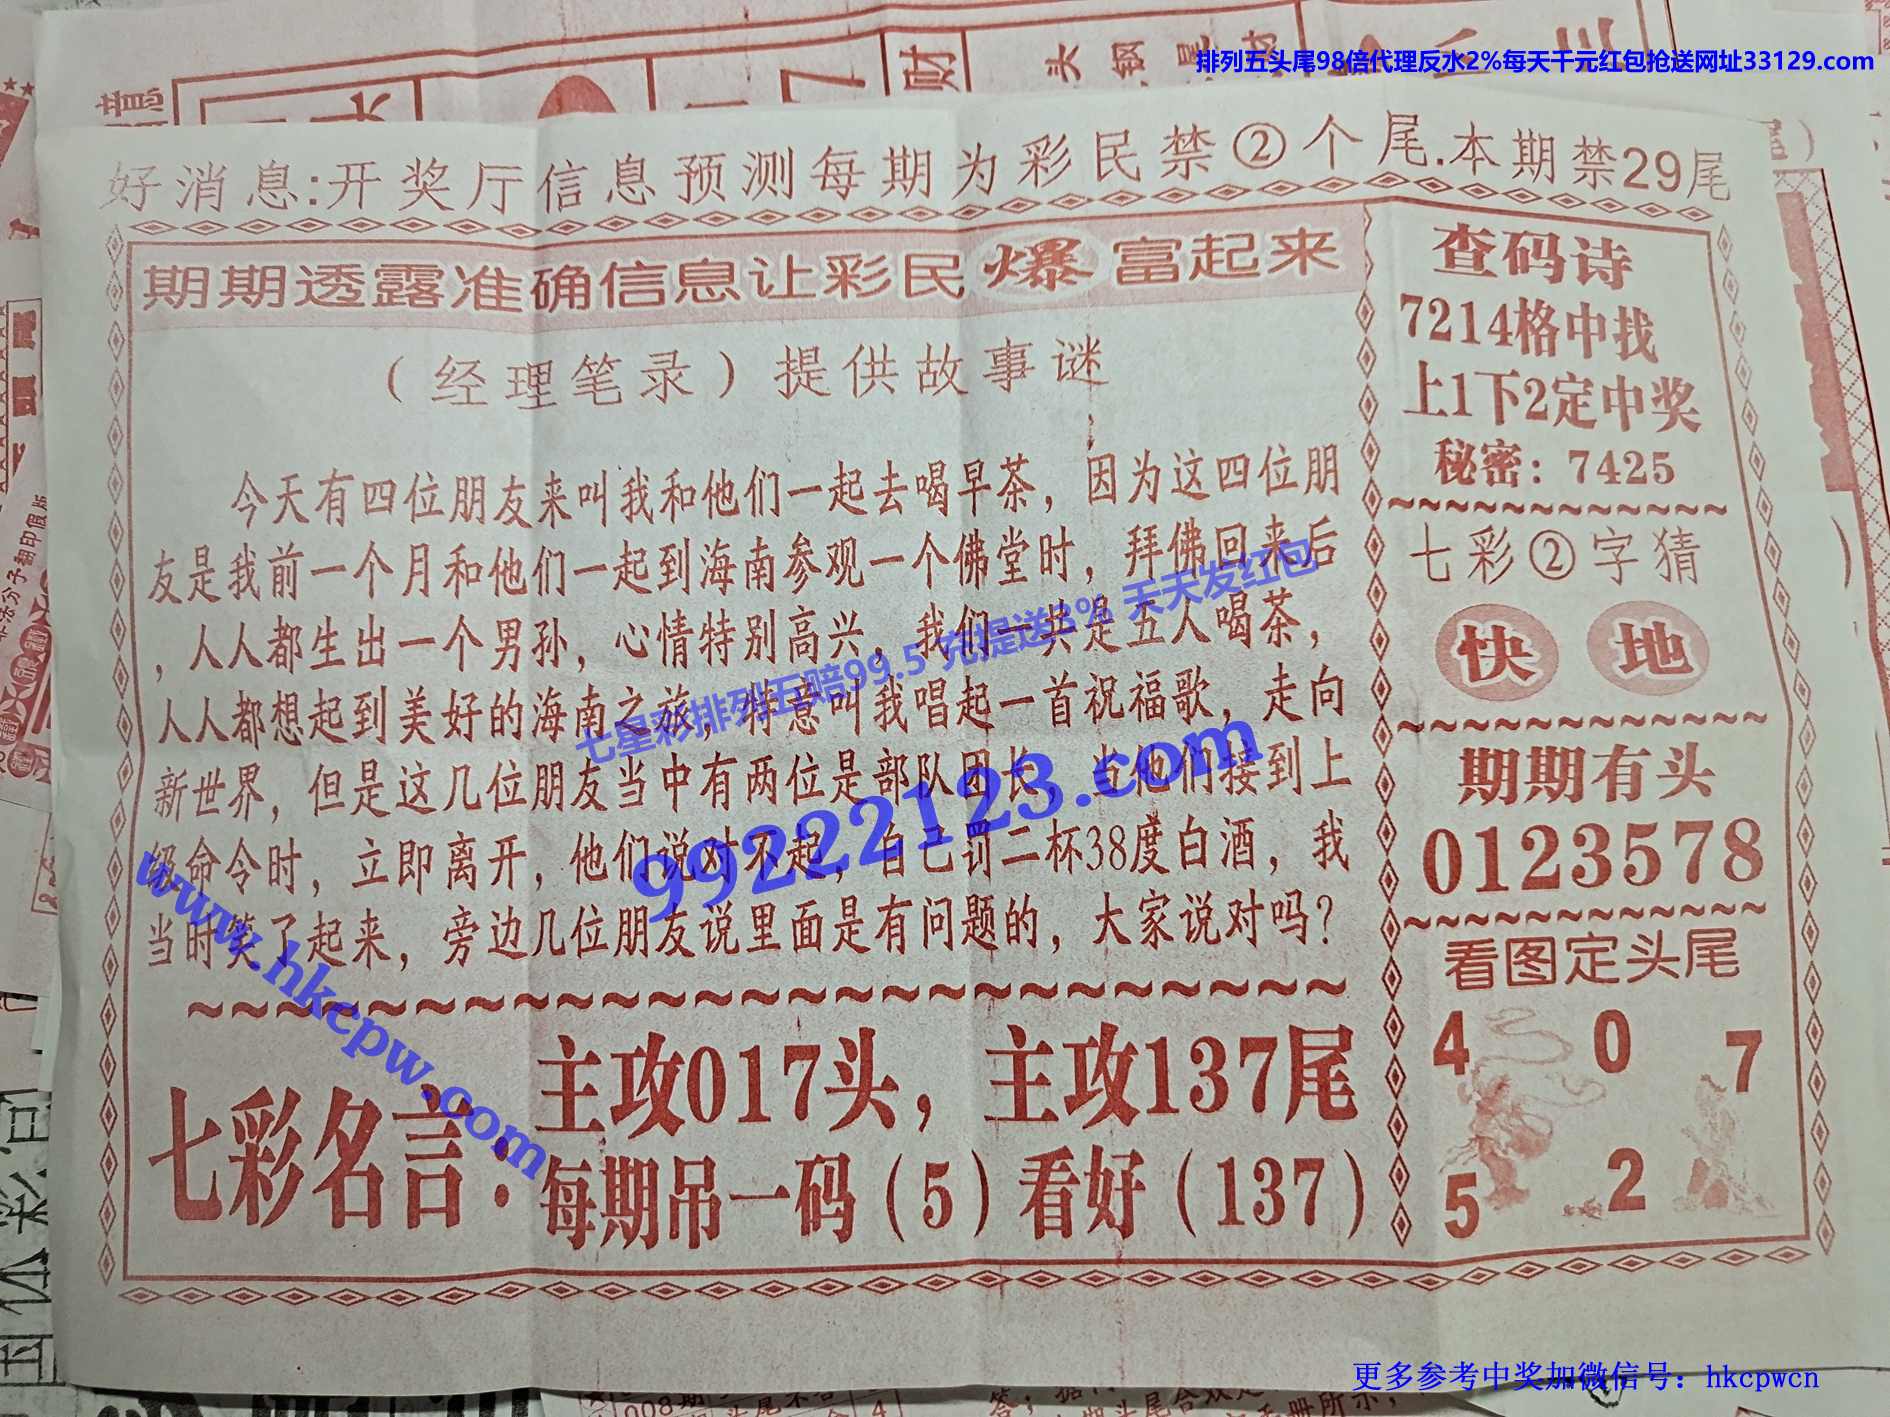 排列五头尾98倍代理反水2%每天千元红包抢送网址33129.com
好消息:开奖厅信息预测每期为彩民禁②个尾.本期禁29尾
期期透露准确信息让彩民爆富起来
（经理笔录）提供故事谜
今天有四位朋友来叫我和他们一起去喝早茶，因为这四位朋
友是我前一个月和他们一起到海南参观一个佛堂时，拜佛回来后
，人人都生出一个男孙，心情特别高兴，我们一共是五人喝茶，
人人都想起到美好的海南之旅，特意叫我唱起一首祝福歌，走向
新世界，但是这几位朋友当中有两位是部队团长，当他们接到上
级命令时，立即离开，他们说对不起，自己罚二杯38度白酒，我
当时笑了起来，旁边几位朋友说里面是有问题的，大家说对吗？
七彩名言：
主攻017头，主攻137尾
每期吊一码（5）看好（137）
查码诗
7214格中找
上1下2定中奖
秘密：7425
七彩②字猜
快 地
期期有头
0123578
看图定头尾
4 0 7
5 2
七星彩排列五赔99.5 充提送3% 天天发红包
99222123.com
www.hkcpw.com
更多参考中奖加微信号：hkcpwcn